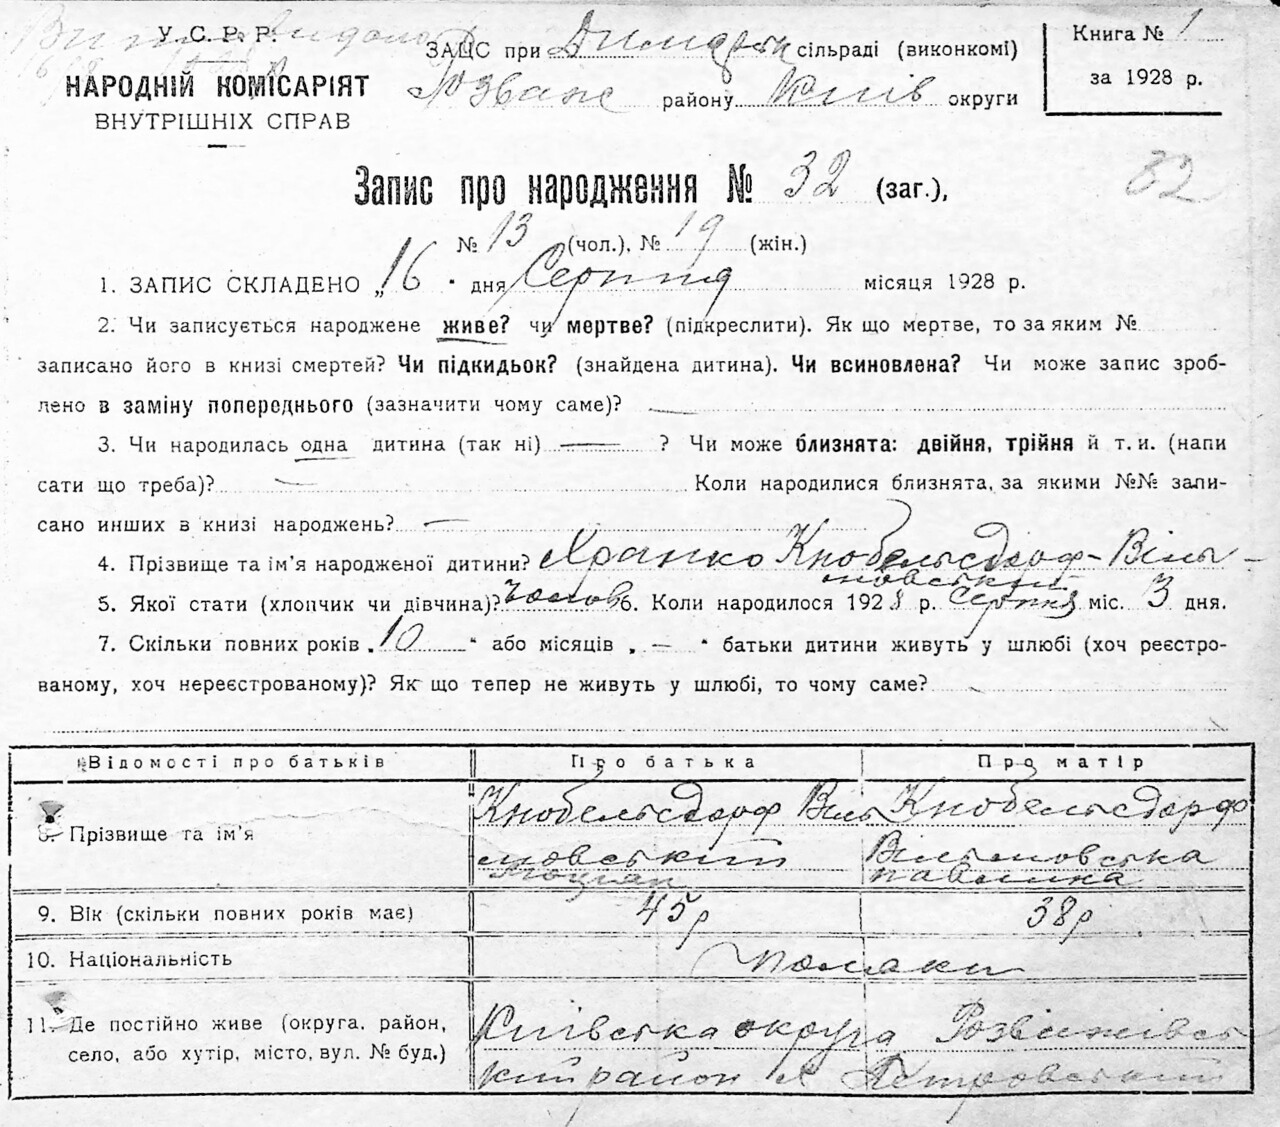 У. С. Р. Р.
НАРОДНІЙ КОМІСАРІЯТ
ВНУТРІШНІХ СПРАВ
ЗАЦС при Димарськ сільраді (виконкомі)
Розваж району Київ округи
Книга № 1
за 1928 р.
Запис про народження № 32 (заг.),
32
№ 13 (чол.), № 19 (жін.)
1. ЗАПИС СКЛАДЕНО „16" дня Серпня місяця 1928 р.
2. Чи записується народжене живе? чи мертве? (підкреслити). Як що мертве, то за яким №
записано його в книзі смертей? Чи підкидьок? (знайдена дитина). Чи всиновлена? Чи може запис зроб-
лено в заміну попереднього (зазначити чому саме)? —
3. Чи народилась одна дитина (так ні) — ? Чи може близнята: двійня, трійня й т. и. (напи
сати що треба)? — Коли народилися близнята, за якими №№ запи-
сано инших в книзі народжень? —
4. Прізвище та ім'я народженої дитини? Хранко Кнобельсдорф-Віль-
новський
5. Якої стати (хлопчик чи дівчина)? Чолов 6. Коли народилося 1928 р. Серпня міс. 3 дня.
7. Скільки повних років „10" або місяців „—" батьки дитини живуть у шлюбі (хоч реєстро-
ваному, хоч нереєстрованому)? Як що тепер не живуть у шлюбі, то чому саме? —
Відомості про батьків Про батька Про матір
8. Прізвище та ім'я Кнобельсдорф Віль Кнобельсдорф
новський Вільновська
Павлина
9. Вік (скільки повних років має) 45р 38р
10. Національність поляки
11. Де постійно живе (округа, район, Київська округа Розважівсь
село, або хутір, місто, вул. № буд.) кий район х Петровський